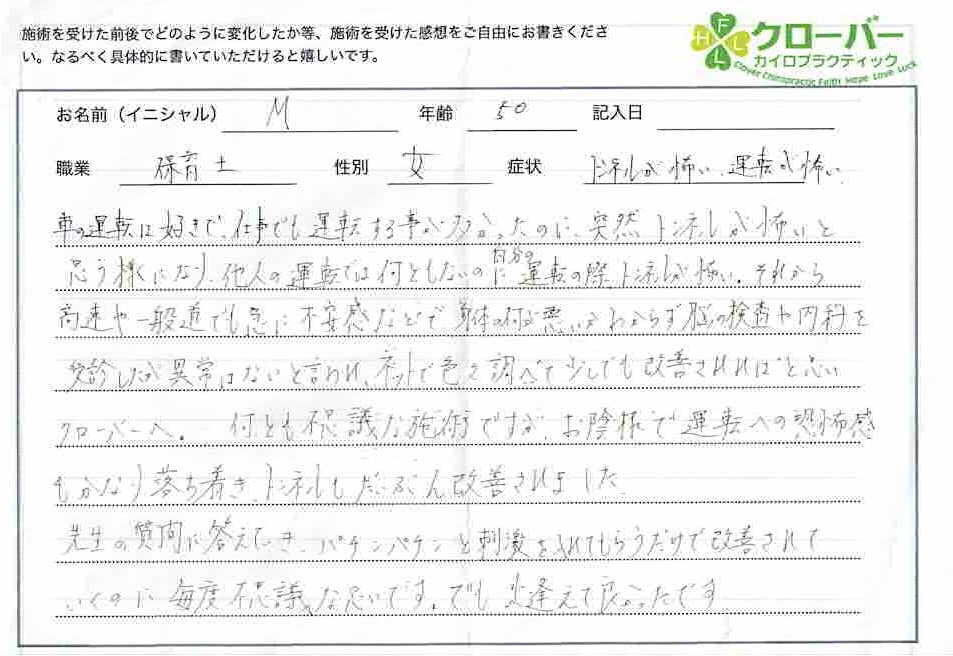 施術を受けた前後でどのように変化したか等、施術を受けた感想をご自由にお書きくださ
い。なるべく具体的に書いていただけると嬉しいです。
H F L L
クローバー
カイロプラクティック
Clover Chiropractic Faith Hope Love Luck
お名前（イニシャル） M 年齢 50 記入日
職業 保育士 性別 女 症状 トンネルが怖い、運転が怖い、
車の運転は好きで、仕事でも運転する事が多かったのに、突然トンネルが怖いと
思う様になり、他人の運転では何ともないのに自分の運転の際、トンネルが怖い。それから
高速や一般道でも急に不安感などで身体の何が悪いかわからず脳の検査や内科を
受診したが異常はないと言われ、ネットで色々調べて少しでも改善されればと思い
クローバーへ。 何とも不思議な施術ですが、お陰様で運転への恐怖感
もかなり落ち着き、トンネルもだいぶん改善されました。
先生の質問に答えていき、パチンパチンと刺激を入れてもらうだけで改善されて
いくのに毎度不思議な思いです。でも 出逢えて良かったです